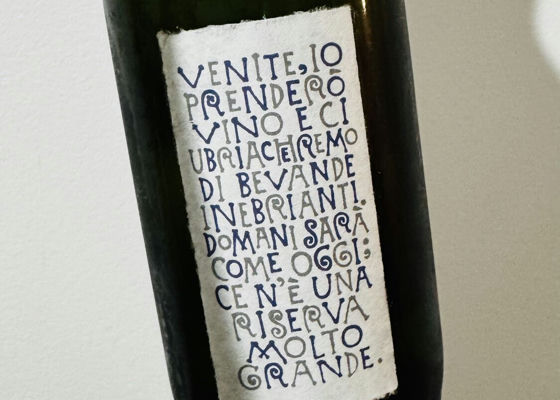 VENITE, IO
PRENDERÒ
VINO E CI
UBRIACHEREMO
DI BEVANDE
INEBRIANTI.
DOMANI SARÀ
COME OGGI;
CE N'È UNA
RISERVA
MOLTO
GRANDE.